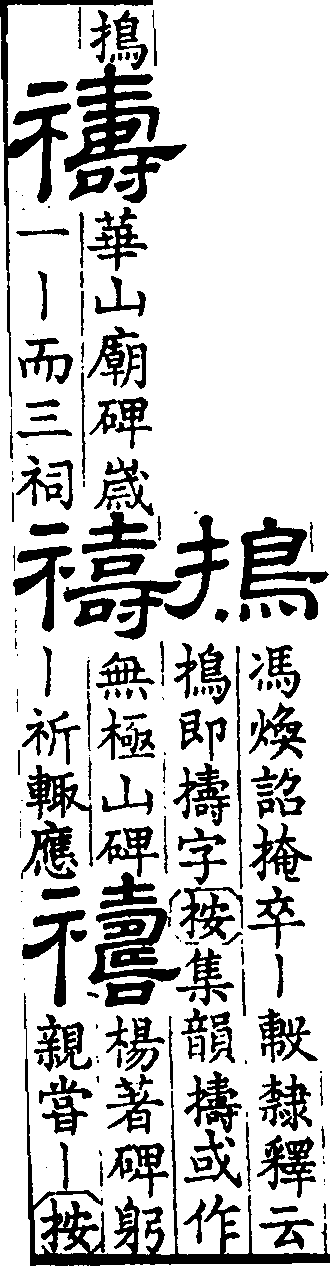 搗
馮煥詔掩卒｜隸釋云
搗即擣字按集韻擣或作
搗
禱
華山廟碑歲
一｜而三祠
禱
無極山碑
｜祈輒應
禱
楊著碑躬
親嘗｜按